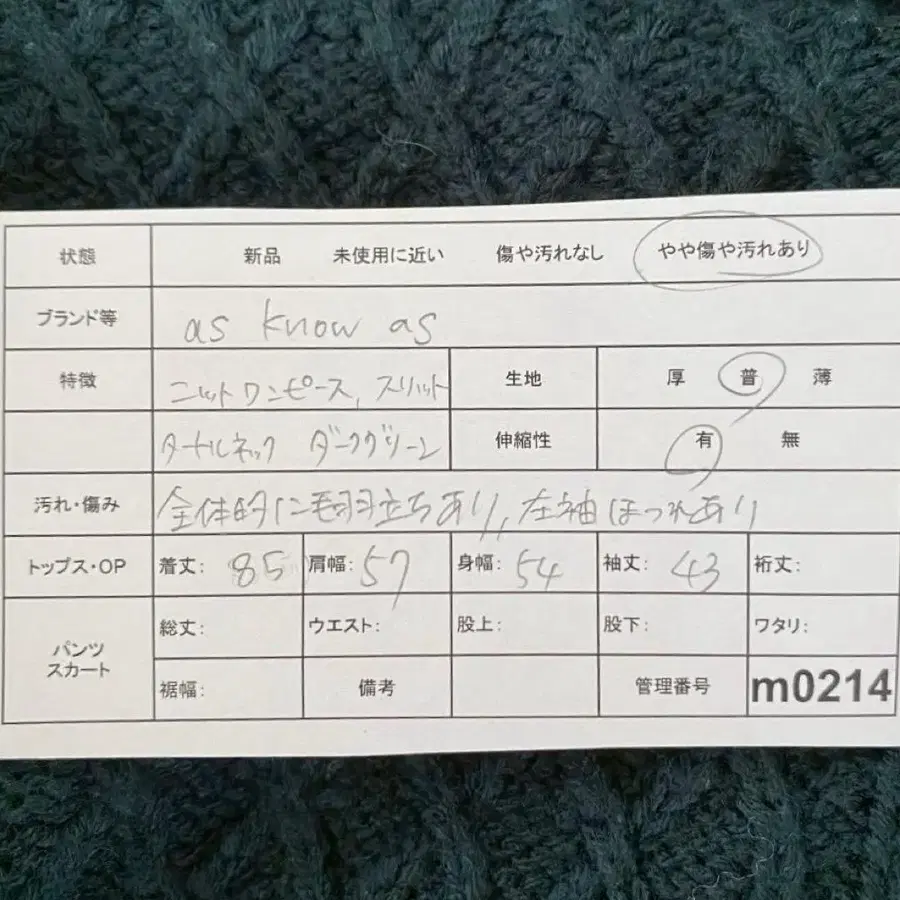 状態 新品 未使用に近い 傷や汚れなし やや傷や汚れあり
ブランド等 as know as
特徴 ニットワンピース、スリット 生地 厚 普 薄
タートルネック ダークグリーン 伸縮性 有 無
汚れ・傷み 全体的に毛羽立ちあり、左袖ほつれあり
トップス・OP 着丈: 85 肩幅: 57 身幅: 54 袖丈: 43 裄丈:
パンツ スカート 総丈: ウエスト: 股上: 股下: ワタリ:
裾幅: 備考 管理番号 m0214